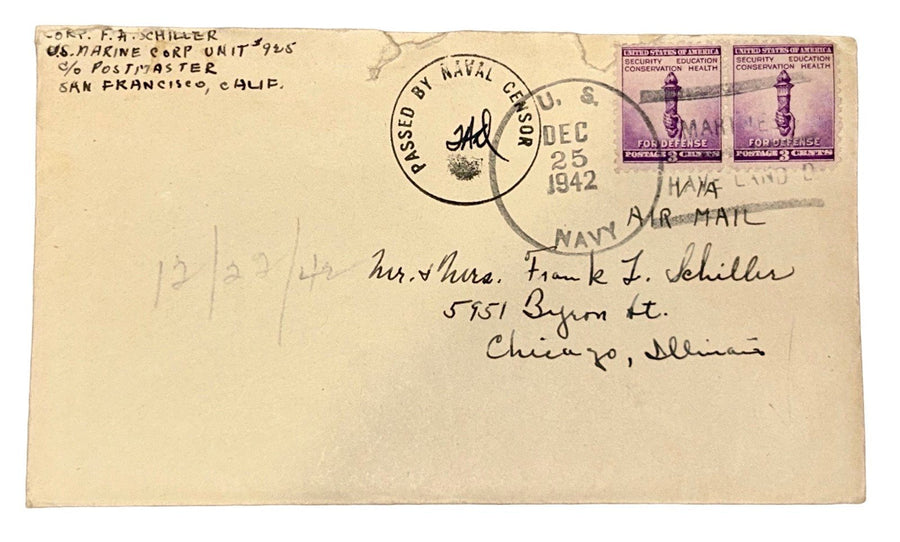 CORP. F. A. SCHILLER
U.S. MARINE CORP UNIT #925
c/o POSTMASTER
SAN FRANCISCO, CALIF.
PASSED BY NAVAL CENSOR
U. S.
DEC
25
1942
NAVY
UNITED STATES OF AMERICA
SECURITY EDUCATION
CONSERVATION HEALTH
FOR DEFENSE
POSTAGE 3 CENTS
UNITED STATES OF AMERICA
SECURITY EDUCATION
CONSERVATION HEALTH
FOR DEFENSE
POSTAGE 3 CENTS
HAVE LANDED
VIA
AIR MAIL
12/22/42
Mr. & Mrs. Frank L. Schiller
5951 Byron St.
Chicago, Illinois